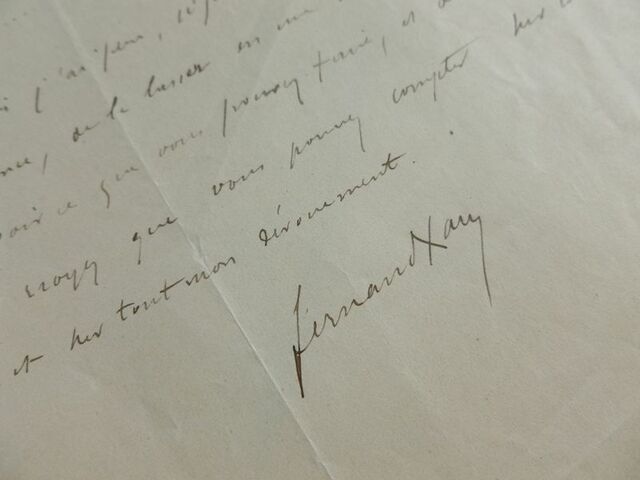 j'ai peur,
de laisser en
ce que vous pouvez faire, et
croyez que vous pouvez compter sur
et sur tout mon dévouement.
Fernand Xau